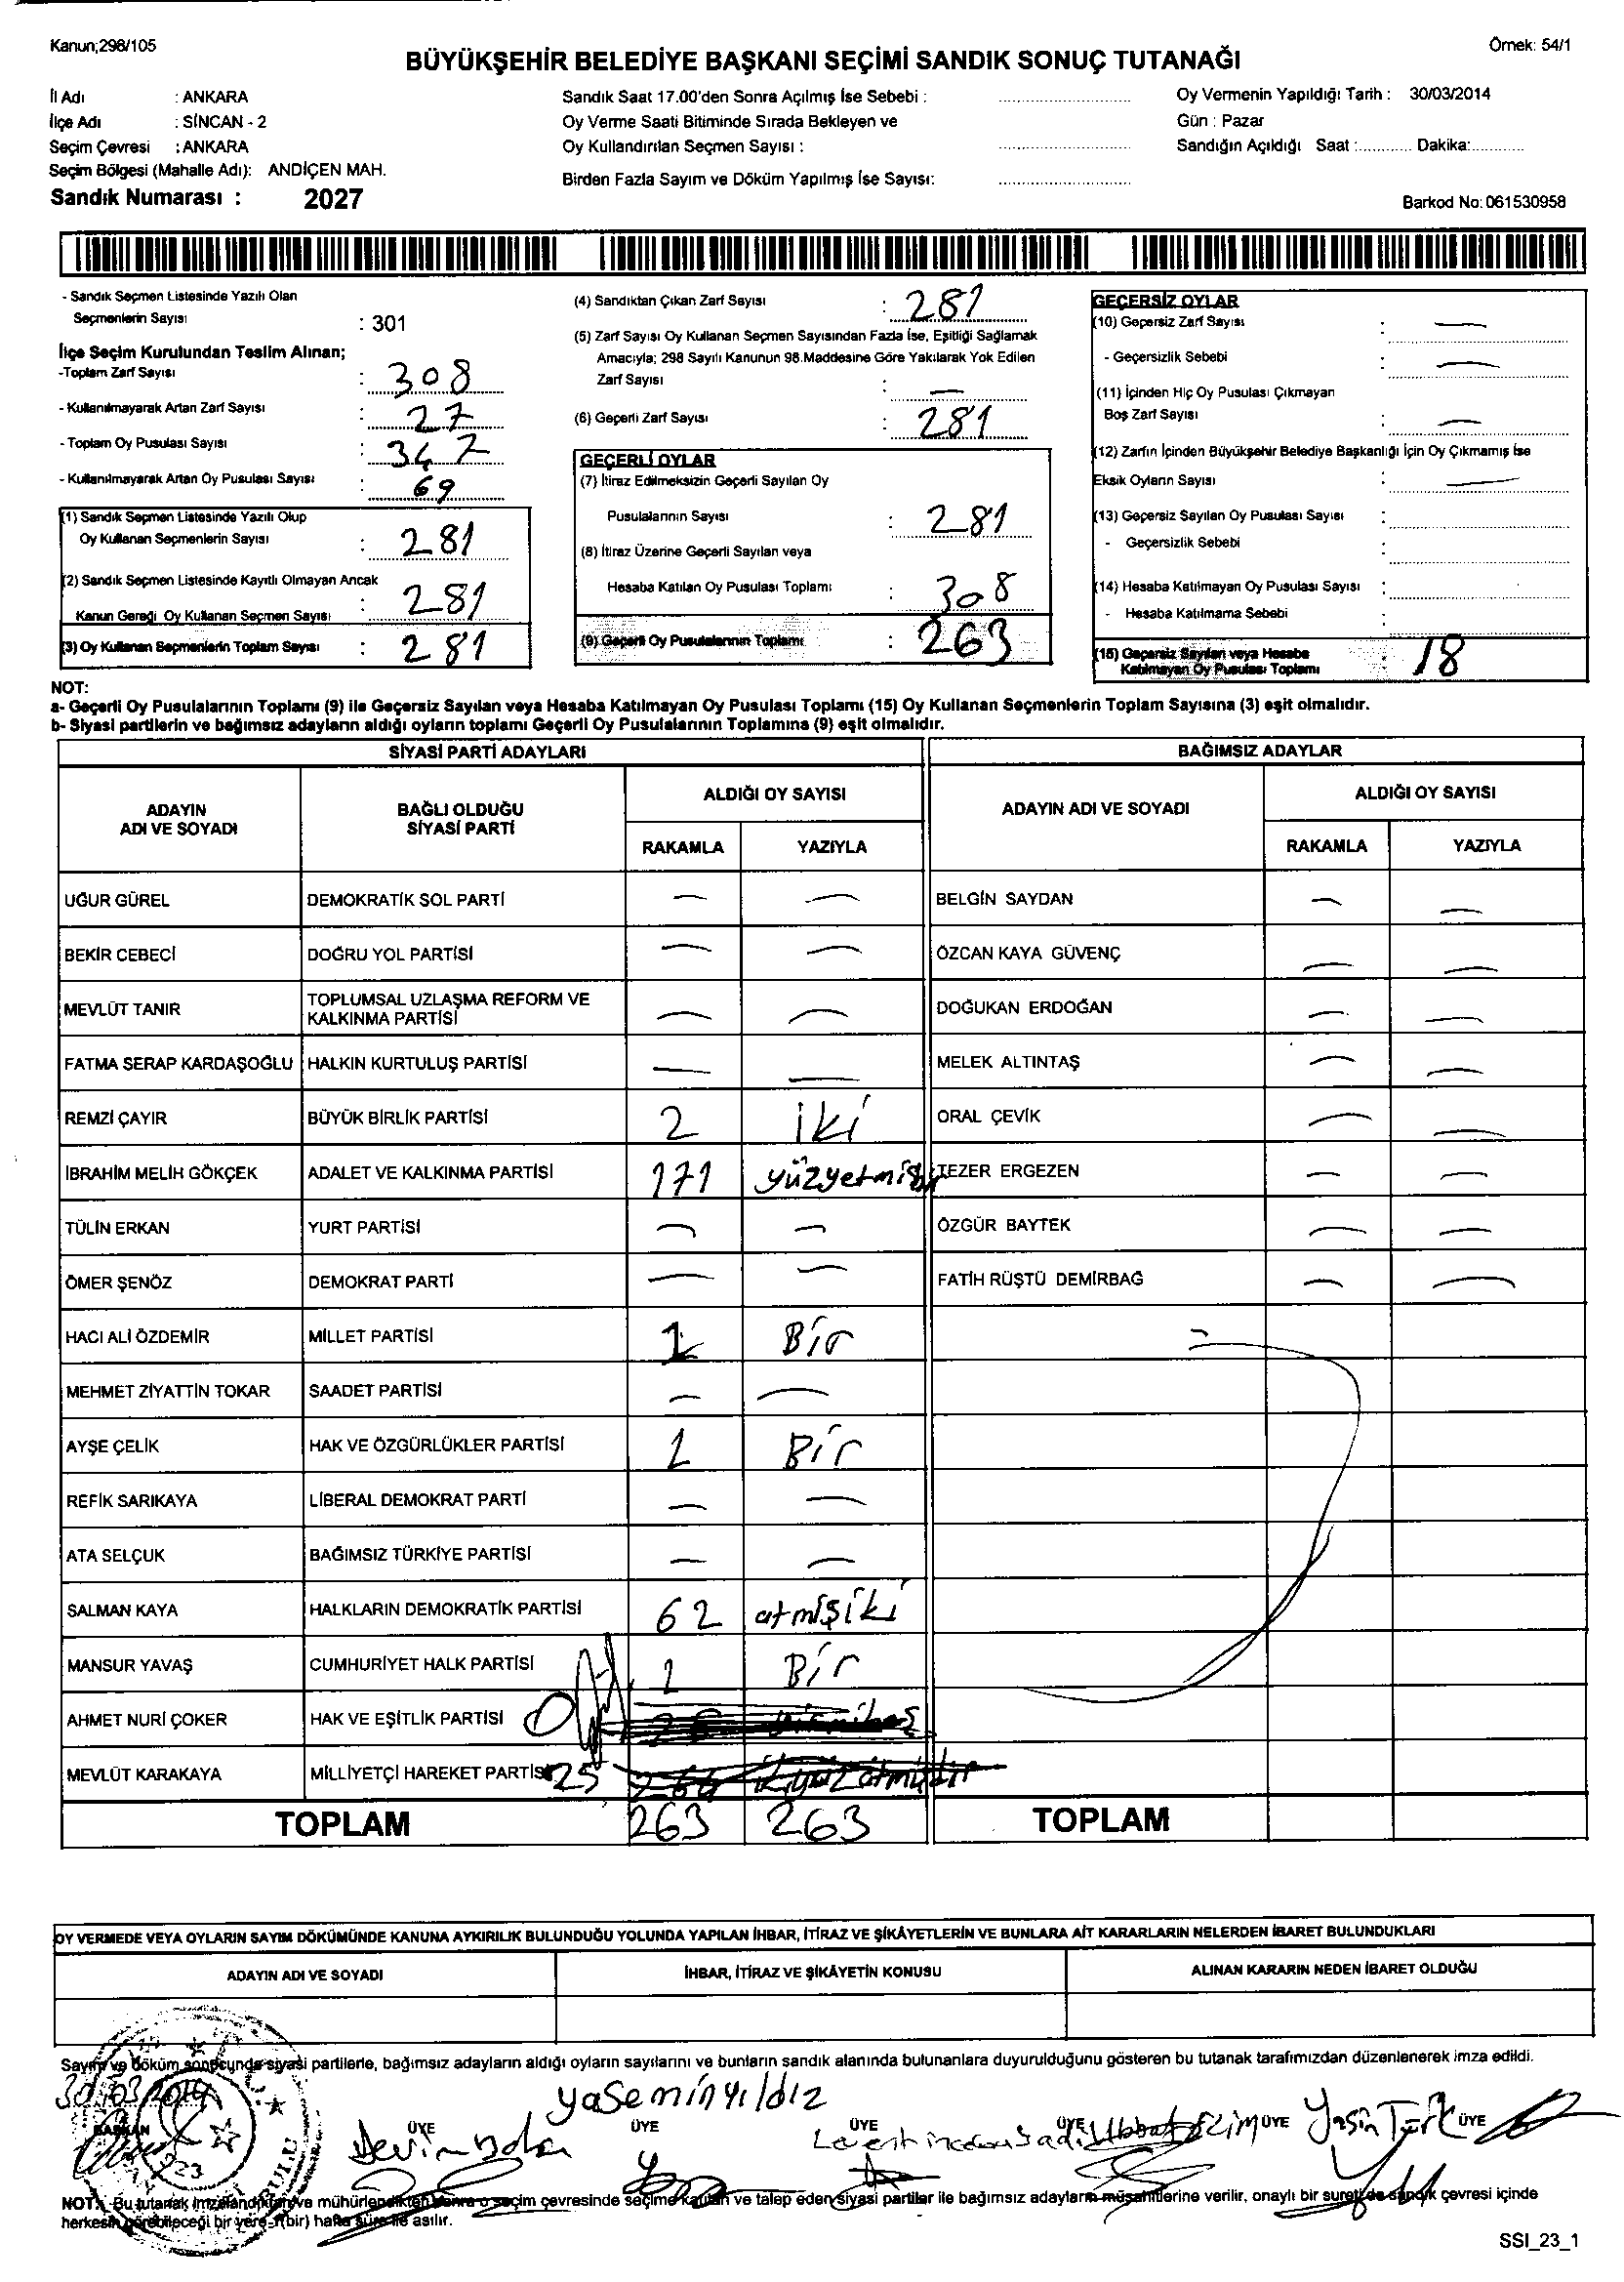 Kanun;298/105
Örnek: 54/1
BÜYÜKŞEHİR BELEDİYE BAŞKANI SEÇİMİ SANDIK SONUÇ TUTANAĞI
İl Adı : ANKARA
İlçe Adı : SİNCAN - 2
Seçim Çevresi : ANKARA
Seçim Bölgesi (Mahalle Adı): ANDİÇEN MAH.
Sandık Numarası : 2027
Sandık Saat 17.00'den Sonra Açılmış İse Sebebi :
Oy Verme Saati Bitiminde Sırada Bekleyen ve
Oy Kullandırılan Seçmen Sayısı :
Birden Fazla Sayım ve Döküm Yapılmış İse Sayısı:
Oy Vermenin Yapıldığı Tarih : 30/03/2014
Gün : Pazar
Sandığın Açıldığı Saat :............ Dakika:............
Barkod No: 061530958
- Sandık Seçmen Listesinde Yazılı Olan
Seçmenlerin Sayısı : 301
İlçe Seçim Kurulundan Teslim Alınan;
-Toplam Zarf Sayısı : 308
- Kullanılmayarak Artan Zarf Sayısı : 27
- Toplam Oy Pusulası Sayısı : 347
- Kullanılmayarak Artan Oy Pusulası Sayısı : 69
(1) Sandık Seçmen Listesinde Yazılı Olup
Oy Kullanan Seçmenlerin Sayısı : 281
(2) Sandık Seçmen Listesinde Kayıtlı Olmayan Ancak
Kanun Gereği Oy Kullanan Seçmen Sayısı : 281
(3) Oy Kullanan Seçmenlerin Toplam Sayısı : 281
(4) Sandıktan Çıkan Zarf Sayısı : 281
(5) Zarf Sayısı Oy Kullanan Seçmen Sayısından Fazla İse, Eşitliği Sağlamak
Amacıyla; 298 Sayılı Kanunun 98.Maddesine Göre Yakılarak Yok Edilen
Zarf Sayısı : —
(6) Geçerli Zarf Sayısı : 281
GEÇERLİ OYLAR
(7) İtiraz Edilmeksizin Geçerli Sayılan Oy
Pusulalarının Sayısı : 281
(8) İtiraz Üzerine Geçerli Sayılan veya
Hesaba Katılan Oy Pusulası Toplamı : 308
(9) Geçerli Oy Pusulalarının Toplamı : 263
GEÇERSİZ OYLAR
(10) Geçersiz Zarf Sayısı : —
- Geçersizlik Sebebi : —
(11) İçinden Hiç Oy Pusulası Çıkmayan
Boş Zarf Sayısı : —
(12) Zarfın İçinden Büyükşehir Belediye Başkanlığı İçin Oy Çıkmamış İse
Eksik Oyların Sayısı : —
(13) Geçersiz Sayılan Oy Pusulası Sayısı :
- Geçersizlik Sebebi :
(14) Hesaba Katılmayan Oy Pusulası Sayısı :
- Hesaba Katılmama Sebebi :
(15) Geçersiz Sayılan veya Hesaba
Katılmayan Oy Pusulası Toplamı : 18
NOT:
a- Geçerli Oy Pusulalarının Toplamı (9) ile Geçersiz Sayılan veya Hesaba Katılmayan Oy Pusulası Toplamı (15) Oy Kullanan Seçmenlerin Toplam Sayısına (3) eşit olmalıdır.
b- Siyasi partilerin ve bağımsız adayların aldığı oyların toplamı Geçerli Oy Pusulalarının Toplamına (9) eşit olmalıdır.
SİYASİ PARTİ ADAYLARI
BAĞIMSIZ ADAYLAR
ADAYIN ADI VE SOYADI
BAĞLI OLDUĞU SİYASİ PARTİ
ALDIĞI OY SAYISI
RAKAMLA YAZIYLA
ADAYIN ADI VE SOYADI
ALDIĞI OY SAYISI
RAKAMLA YAZIYLA
UĞUR GÜREL DEMOKRATİK SOL PARTİ — — BELGİN SAYDAN — —
BEKİR CEBECİ DOĞRU YOL PARTİSİ — — ÖZCAN KAYA GÜVENÇ — —
MEVLÜT TANIR TOPLUMSAL UZLAŞMA REFORM VE KALKINMA PARTİSİ — — DOĞUKAN ERDOĞAN — —
FATMA SERAP KARDAŞOĞLU HALKIN KURTULUŞ PARTİSİ — — MELEK ALTINTAŞ — —
REMZİ ÇAYIR BÜYÜK BİRLİK PARTİSİ 2 iki ORAL ÇEVİK — —
İBRAHİM MELİH GÖKÇEK ADALET VE KALKINMA PARTİSİ 171 yüzyetmişbir TEZER ERGEZEN — —
TÜLİN ERKAN YURT PARTİSİ — — ÖZGÜR BAYTEK — —
ÖMER ŞENÖZ DEMOKRAT PARTİ — — FATİH RÜŞTÜ DEMİRBAĞ — —
HACI ALİ ÖZDEMİR MİLLET PARTİSİ 1 Bir
MEHMET ZİYATTİN TOKAR SAADET PARTİSİ — —
AYŞE ÇELİK HAK VE ÖZGÜRLÜKLER PARTİSİ 1 Bir
REFİK SARIKAYA LİBERAL DEMOKRAT PARTİ — —
ATA SELÇUK BAĞIMSIZ TÜRKİYE PARTİSİ — —
SALMAN KAYA HALKLARIN DEMOKRATİK PARTİSİ 62 atmışiki
MANSUR YAVAŞ CUMHURİYET HALK PARTİSİ 1 Bir
AHMET NURİ ÇOKER HAK VE EŞİTLİK PARTİSİ 0
MEVLÜT KARAKAYA MİLLİYETÇİ HAREKET PARTİSİ 25
TOPLAM 263 263 TOPLAM
OY VERMEDE VEYA OYLARIN SAYIM DÖKÜMÜNDE KANUNA AYKIRILIK BULUNDUĞU YOLUNDA YAPILAN İHBAR, İTİRAZ VE ŞİKÂYETLERİN VE BUNLARA AİT KARARLARIN NELERDEN İBARET BULUNDUKLARI
ADAYIN ADI VE SOYADI İHBAR, İTİRAZ VE ŞİKÂYETİN KONUSU ALINAN KARARIN NEDEN İBARET OLDUĞU
Sayım ve döküm sonucunda siyasi partilerle, bağımsız adayların aldığı oyların sayılarını ve bunların sandık alanında bulunanlara duyurulduğunu gösteren bu tutanak tarafımızdan düzenlenerek imza edildi.
30.03.2014
yasemin yıldız
BAŞKAN ÜYE ÜYE ÜYE ÜYE ÜYE ÜYE
Yasin Türk
NOT: Bu tutanak imzalandıktan ve mühürlendikten sonra o seçim çevresinde seçime katılan ve talep eden siyasi partiler ile bağımsız adayların müşahitlerine verilir, onaylı bir sureti de sandık çevresi içinde
herkesin görebileceği bir yere 1(bir) hafta süre ile asılır.
SSI_23_1